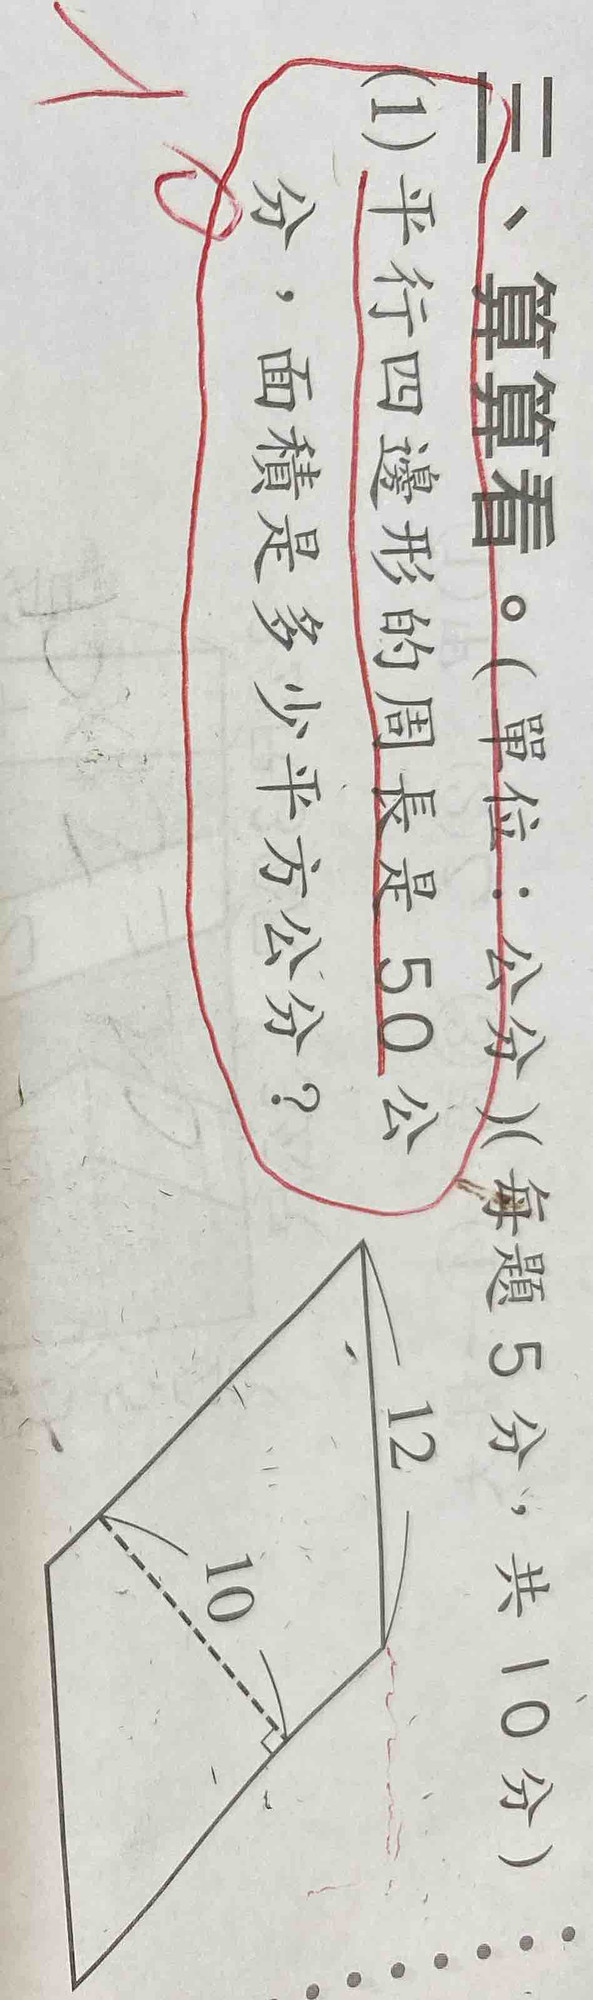 三、算算看。(單位：公分)(每題5分，共10分)
(1)平行四邊形的周長是50公
分，面積是多少平方公分？
12
10